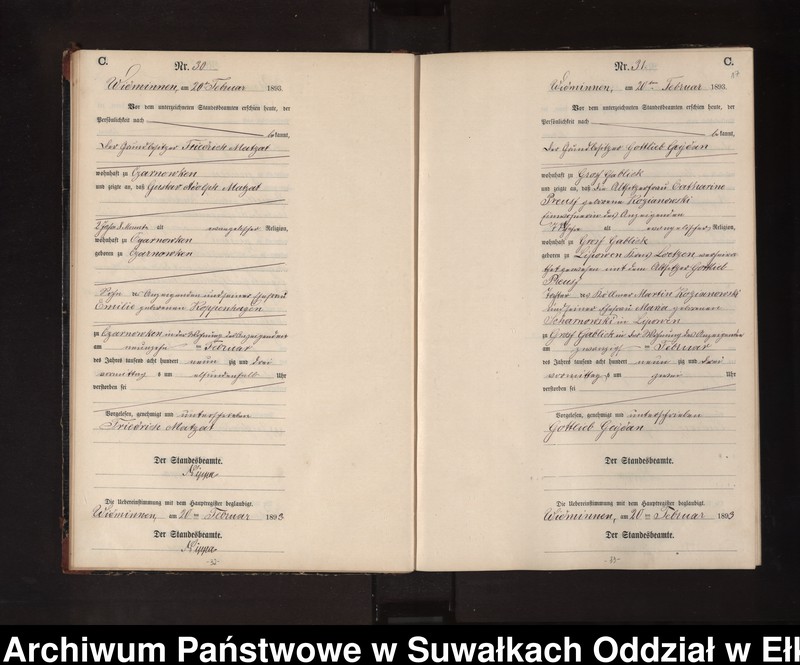 C.
Nr. 30
Widminnen, am 20ten Februar 1893.
Vor dem unterzeichneten Standesbeamten erschien heute, der
Persönlichkeit nach
be kannt,
der Grundbesitzer Friedrich Matzat
wohnhaft zu Czarnowken
und zeigte an, daß Gustav Adolph Matzat
alt evangelischer Religion,
wohnhaft zu Czarnowken
geboren zu Czarnowken
Sohn des Anzeigenden und seiner Ehefrau
Emilie geborenen Koppenhagen
zu Czarnowken in der Wohnung des Anzeigenden
am neunzehnten Februar
des Jahres tausend acht hundert neun zig und drei
vormittags um Uhr
verstorben sei
Vorgelesen, genehmigt und unterschrieben
Friedrich Matzat
Der Standesbeamte.
Nippa
Die Uebereinstimmung mit dem Hauptregister beglaubigt.
Widminnen, am 20ten Februar 1893
Der Standesbeamte.
Nippa
C.
Nr. 31
Widminnen, am 20ten Februar 1893.
Vor dem unterzeichneten Standesbeamten erschien heute, der
Persönlichkeit nach
be kannt,
der Grundbesitzer Gottlieb
wohnhaft zu Groß Gablick
und zeigte an, daß die Altsitzerfrau Catharine
Preuß geborene Kozianowski
des Anzeigenden
alt evangelischer Religion,
wohnhaft zu Groß Gablick
geboren zu Lipowen Kreis Loetzen
gewesen mit dem Altsitzer Gottlieb
Preuß
Tochter des Martin Kozianowski
und seiner Ehefrau Maria geborenen
Scharnowski in Lipowen
zu Groß Gablick in der Wohnung des Anzeigenden
am zwanzigsten Februar
des Jahres tausend acht hundert neun zig und drei
vormittags um zwei Uhr
verstorben sei
Vorgelesen, genehmigt und unterschrieben
Gottlieb
Der Standesbeamte.
Die Uebereinstimmung mit dem Hauptregister beglaubigt.
Widminnen, am 20ten Februar 1893
Der Standesbeamte.
Archiwum Państwowe w Suwałkach Oddział w Eł